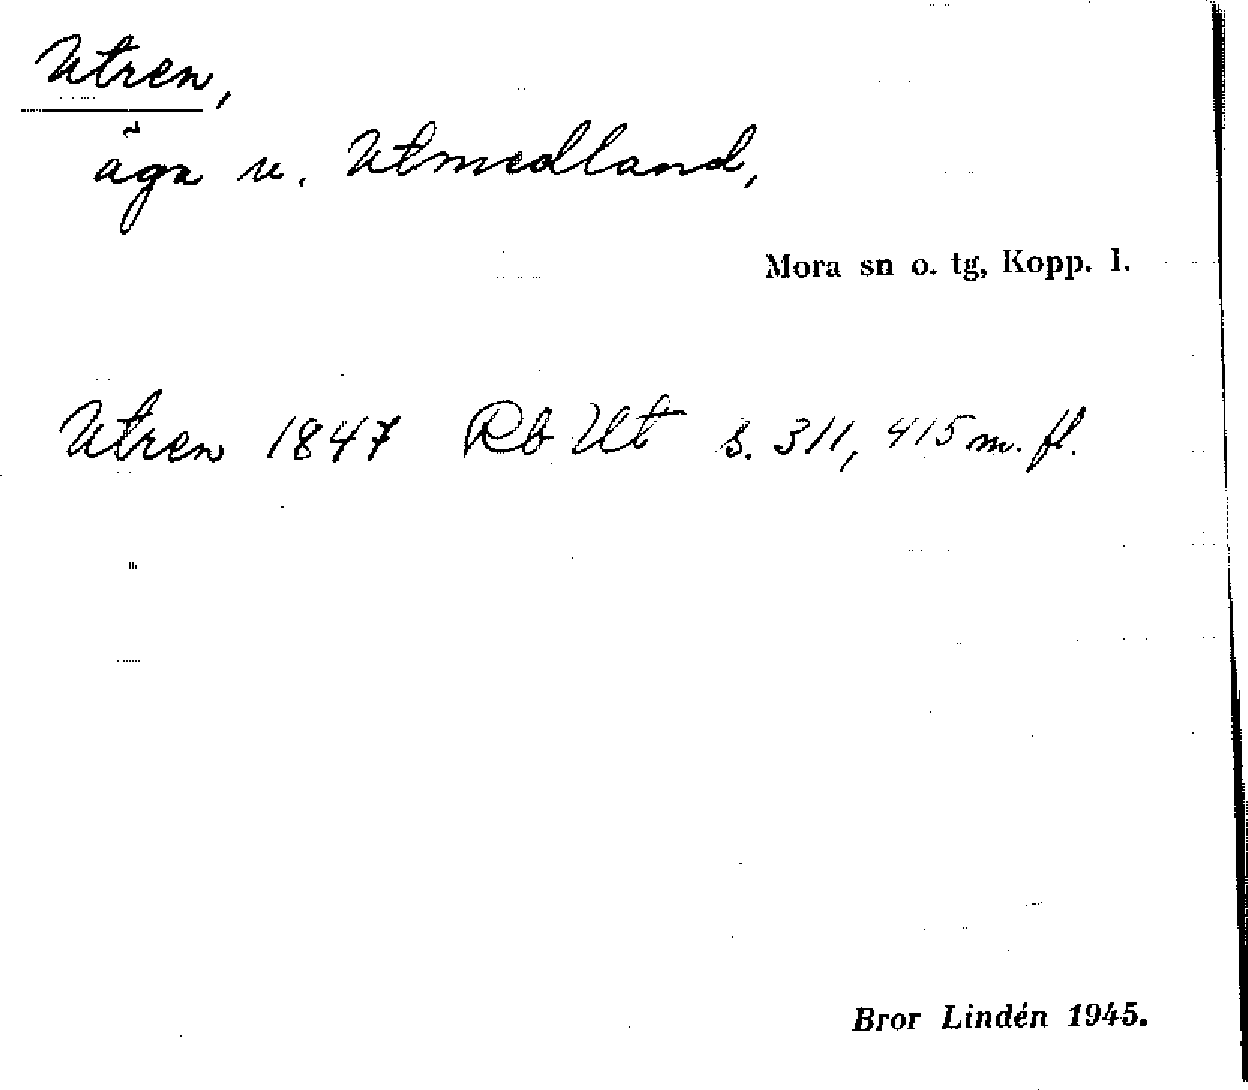 Utren,
äga v. Utmedland,
Mora sn o. tg, Kopp. l.
Utren 1847 Rb Ut s. 311, 415 m. fl.
Bror Lindén 1945.